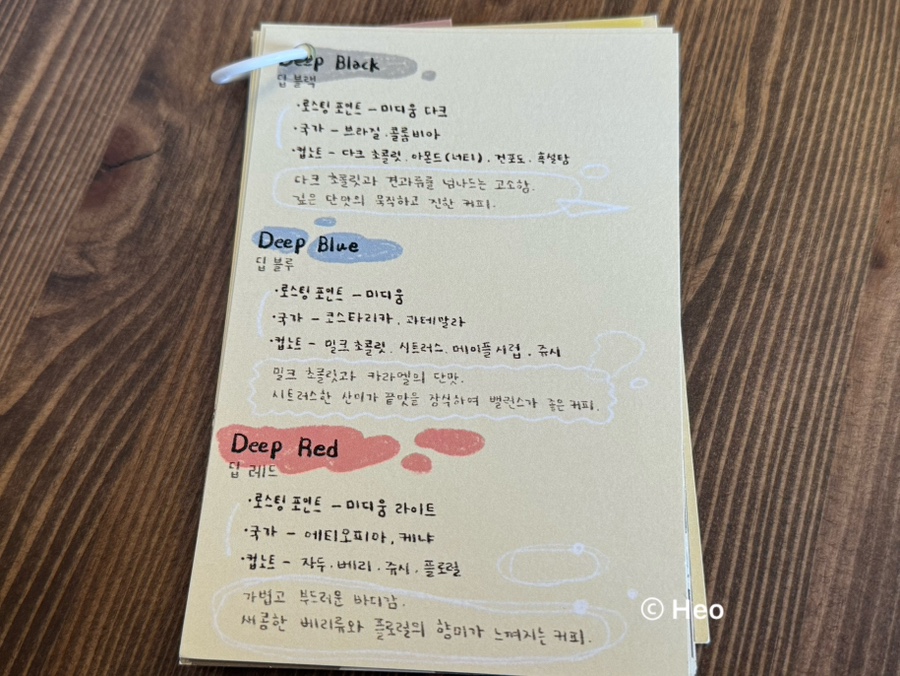 Deep Black
딥 블랙
· 로스팅 포인트 - 미디움 다크
· 국가 - 브라질 . 콜롬비아
· 컵노트 - 다크 초콜릿 . 아몬드(너티) . 건포도 . 흑설탕
다크 초콜릿과 견과류를 넘나드는 고소함.
깊은 단맛의 묵직하고 진한 커피.
Deep Blue
딥 블루
· 로스팅 포인트 - 미디움
· 국가 - 코스타리카 . 과테말라
· 컵노트 - 밀크 초콜릿 . 시트러스 . 메이플시럽 . 쥬시
밀크 초콜릿과 카라멜의 단맛.
시트러스한 산미가 끝맛을 장식하여 밸런스가 좋은 커피.
Deep Red
딥 레드
· 로스팅 포인트 - 미디움 라이트
· 국가 - 에티오피아, 케냐
· 컵노트 - 자두 . 베리 . 쥬시 . 플로럴
가볍고 부드러운 바디감.
새콤한 베리류와 플로럴의 향미가 느껴지는 커피.
© Heo